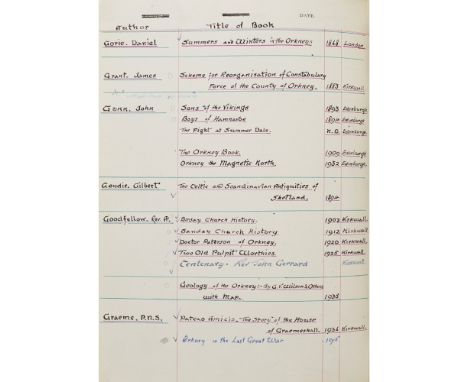 DATE
Author Title of Book
Gorie. Daniel Summers and Winters in the Orkneys 1868 London
Grant, James Scheme for Reorganisation of Constabulary
Force of the County of Orkney. 1883 Kirkwall
Gunn, John Sons of the Vikings 1893 Edinburgh
Boys of Hamnavoe 1890 Edinburgh
The Fight at Summer Dale. N.D. Edinburgh
The Orkney Book. 1909 Edinburgh
Orkney the Magnetic North. 1932 Edinburgh
Goudie, Gilbert The Celtic and Scandinavian Antiquities of
Shetland. 1904
Goodfellow. Rev. A. Birsay Church History. 1903 Kirkwall.
Sanday Church History 1912 Kirkwall.
Doctor Paterson of Orkney. 1920 Kirkwall.
Two Old Pulpit Worthies 1925 Kirkwall.
Centenary - Rev John Gerrard Kirkwall
Geology of the Orkneys - By G.V. Wilson & Others
with Map. 1935
Graeme, P.N.S. Pateas Amicis - The Story of the House
of Graemeshall. 1936 Kirkwall.
Orkney in the Last Great War